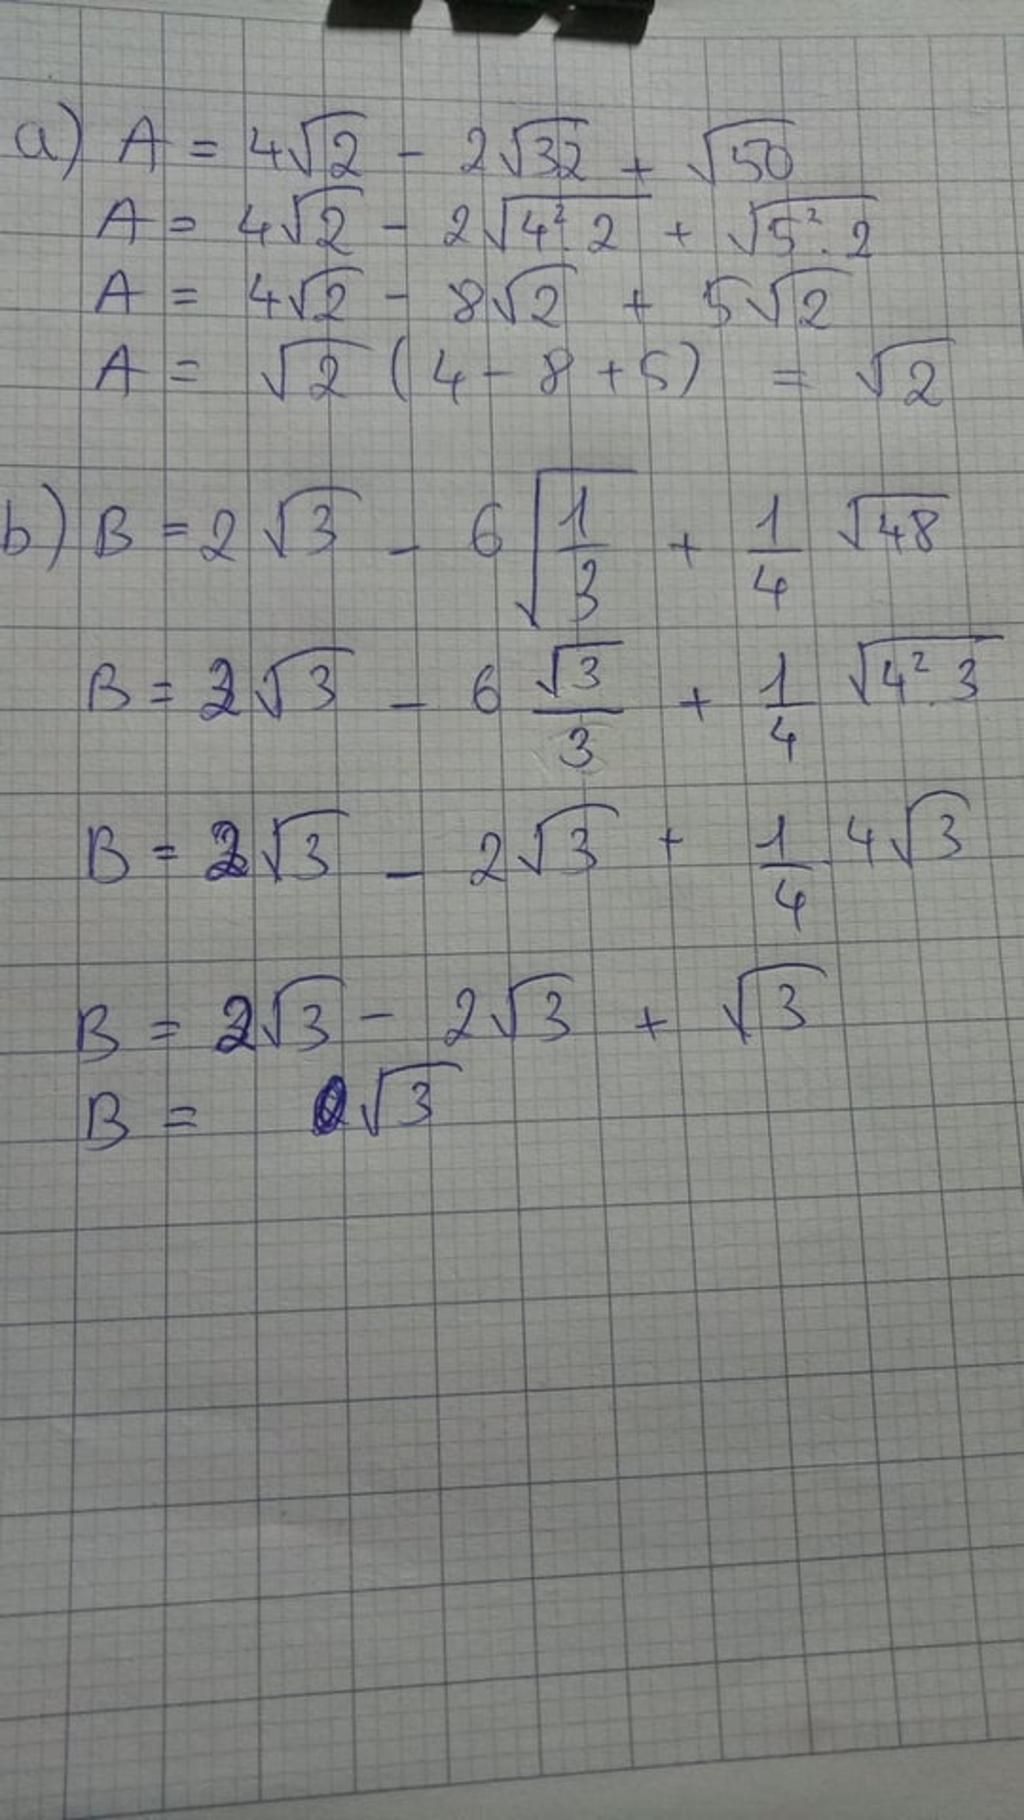 a) A = 4√2 - 2√32 + √50
A = 4√2 - 2√4².2 + √5².2
A = 4√2 - 8√2 + 5√2
A = √2 (4 - 8 + 5) = √2
b) B = 2√3 - 6√(1/3) + 1/4 √48
B = 2√3 - 6 √3/3 + 1/4 √4².3
B = 2√3 - 2√3 + 1/4 . 4√3
B = 2√3 - 2√3 + √3
B = √3